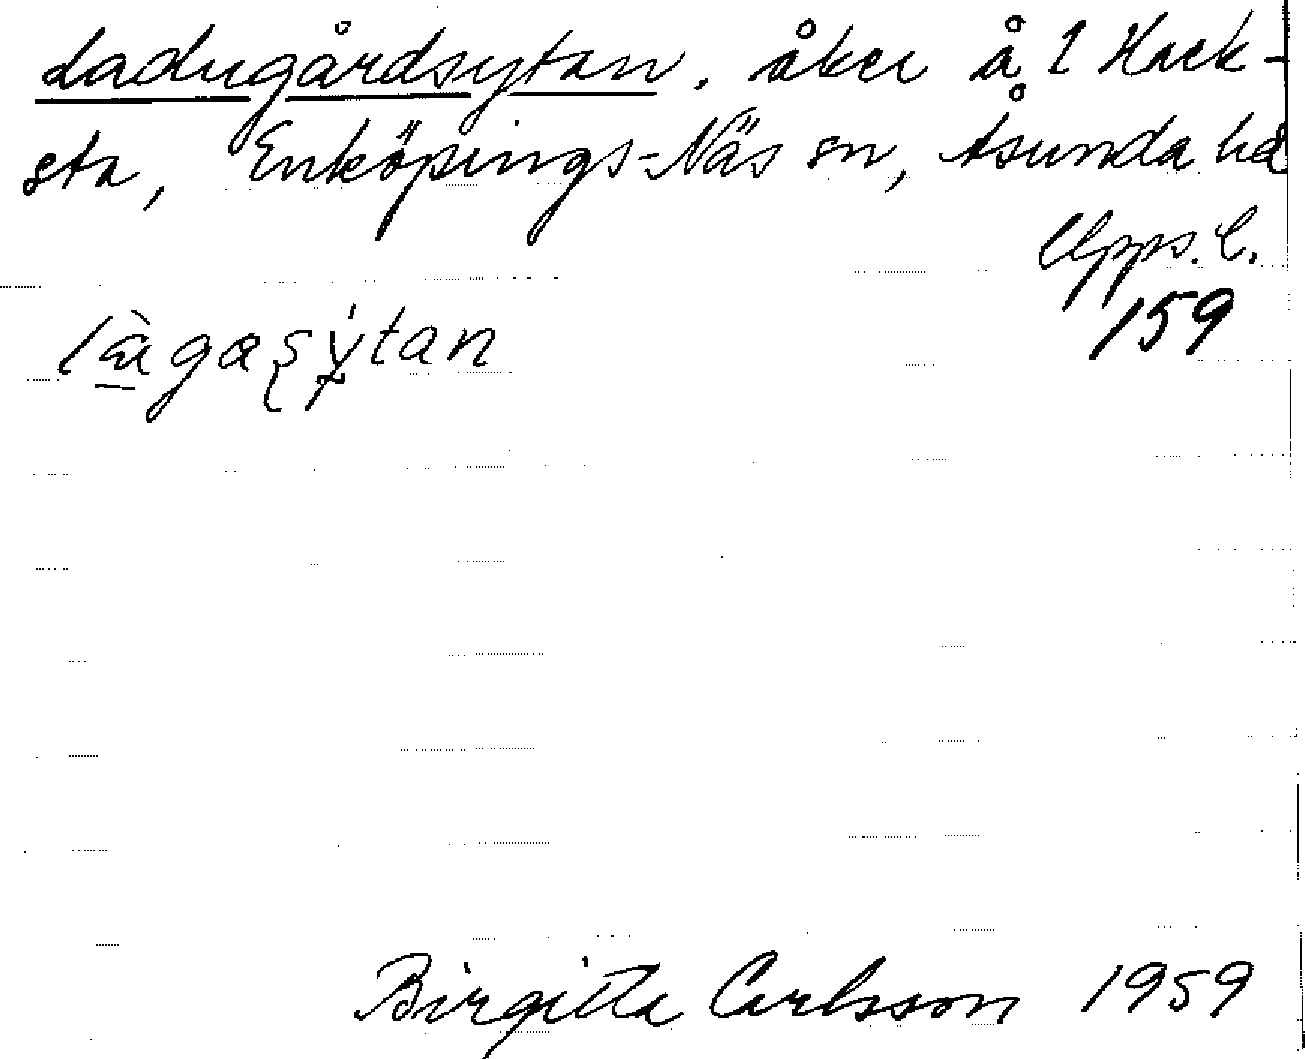 Ladugårdsytan, åker å 1 Hack-
sta, Enköpings-Näs sn, Åsunda hd
Upps. l.
159
Birgitta Carlsson 1959